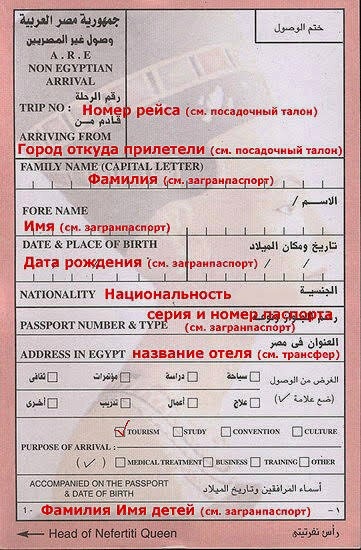 جمهورية مصر العربية
وصول غير المصريين
A . R . E
NON EGYPTIAN
ARRIVAL
ختم الوصول
رقم الرحلة
TRIP NO : Номер рейса (см. посадочный талон)
قادم من
ARRIVING FROM
Город откуда прилетели (см. посадочный талон)
FAMILY NAME (CAPITAL LETTER)
Фамилия (см. загранпаспорт)
الاسم /
FORE NAME
Имя (см. загранпаспорт)
DATE & PLACE OF BIRTH تاريخ ومكان الميلاد
Дата рождения (см. загранпаспорт) / /
NATIONALITY Национальность الجنسية
серия и номер паспорта
PASSPORT NUMBER & TYPE (см. загранпаспорт)
العنوان فى مصر
ADDRESS IN EGYPT название отеля (см. трансфер)
الغرض من الوصول سياحة دراسة مؤتمرات ثقافى
(ضع علامة ✓) علاج أعمال تدريب أخرى
TOURISM STUDY CONVENTION CULTURE
PURPOSE OF ARRIVAL :
(✓) MEDICAL TREATMENT BUSINESS TRAINING OTHER
ACCOMPANIED ON THE PASSPORT أسماء المرافقين وتاريخ الميلاد
& DATE OF BIRTH
1- Фамилия Имя детей (см. загранпаспорт) ١-
Head of Nefertiti Queen رأس نفرتيتى